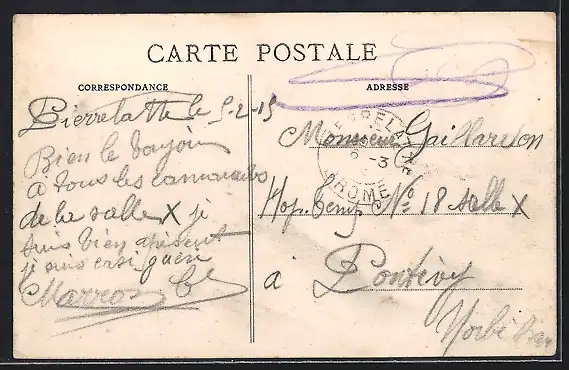 CARTE POSTALE
CORRESPONDANCE
Pierrelatte le 5-2-15
Bien le bonjour
a tous les cammarades
de la salle X je
suis bien apresent
je suis casi guéri
Marron
ADRESSE
Monsieur Gaillardon
Hop. Temp. No 18 salle X
à Pontivy
Morbihan
PIERRELATTE
DROME